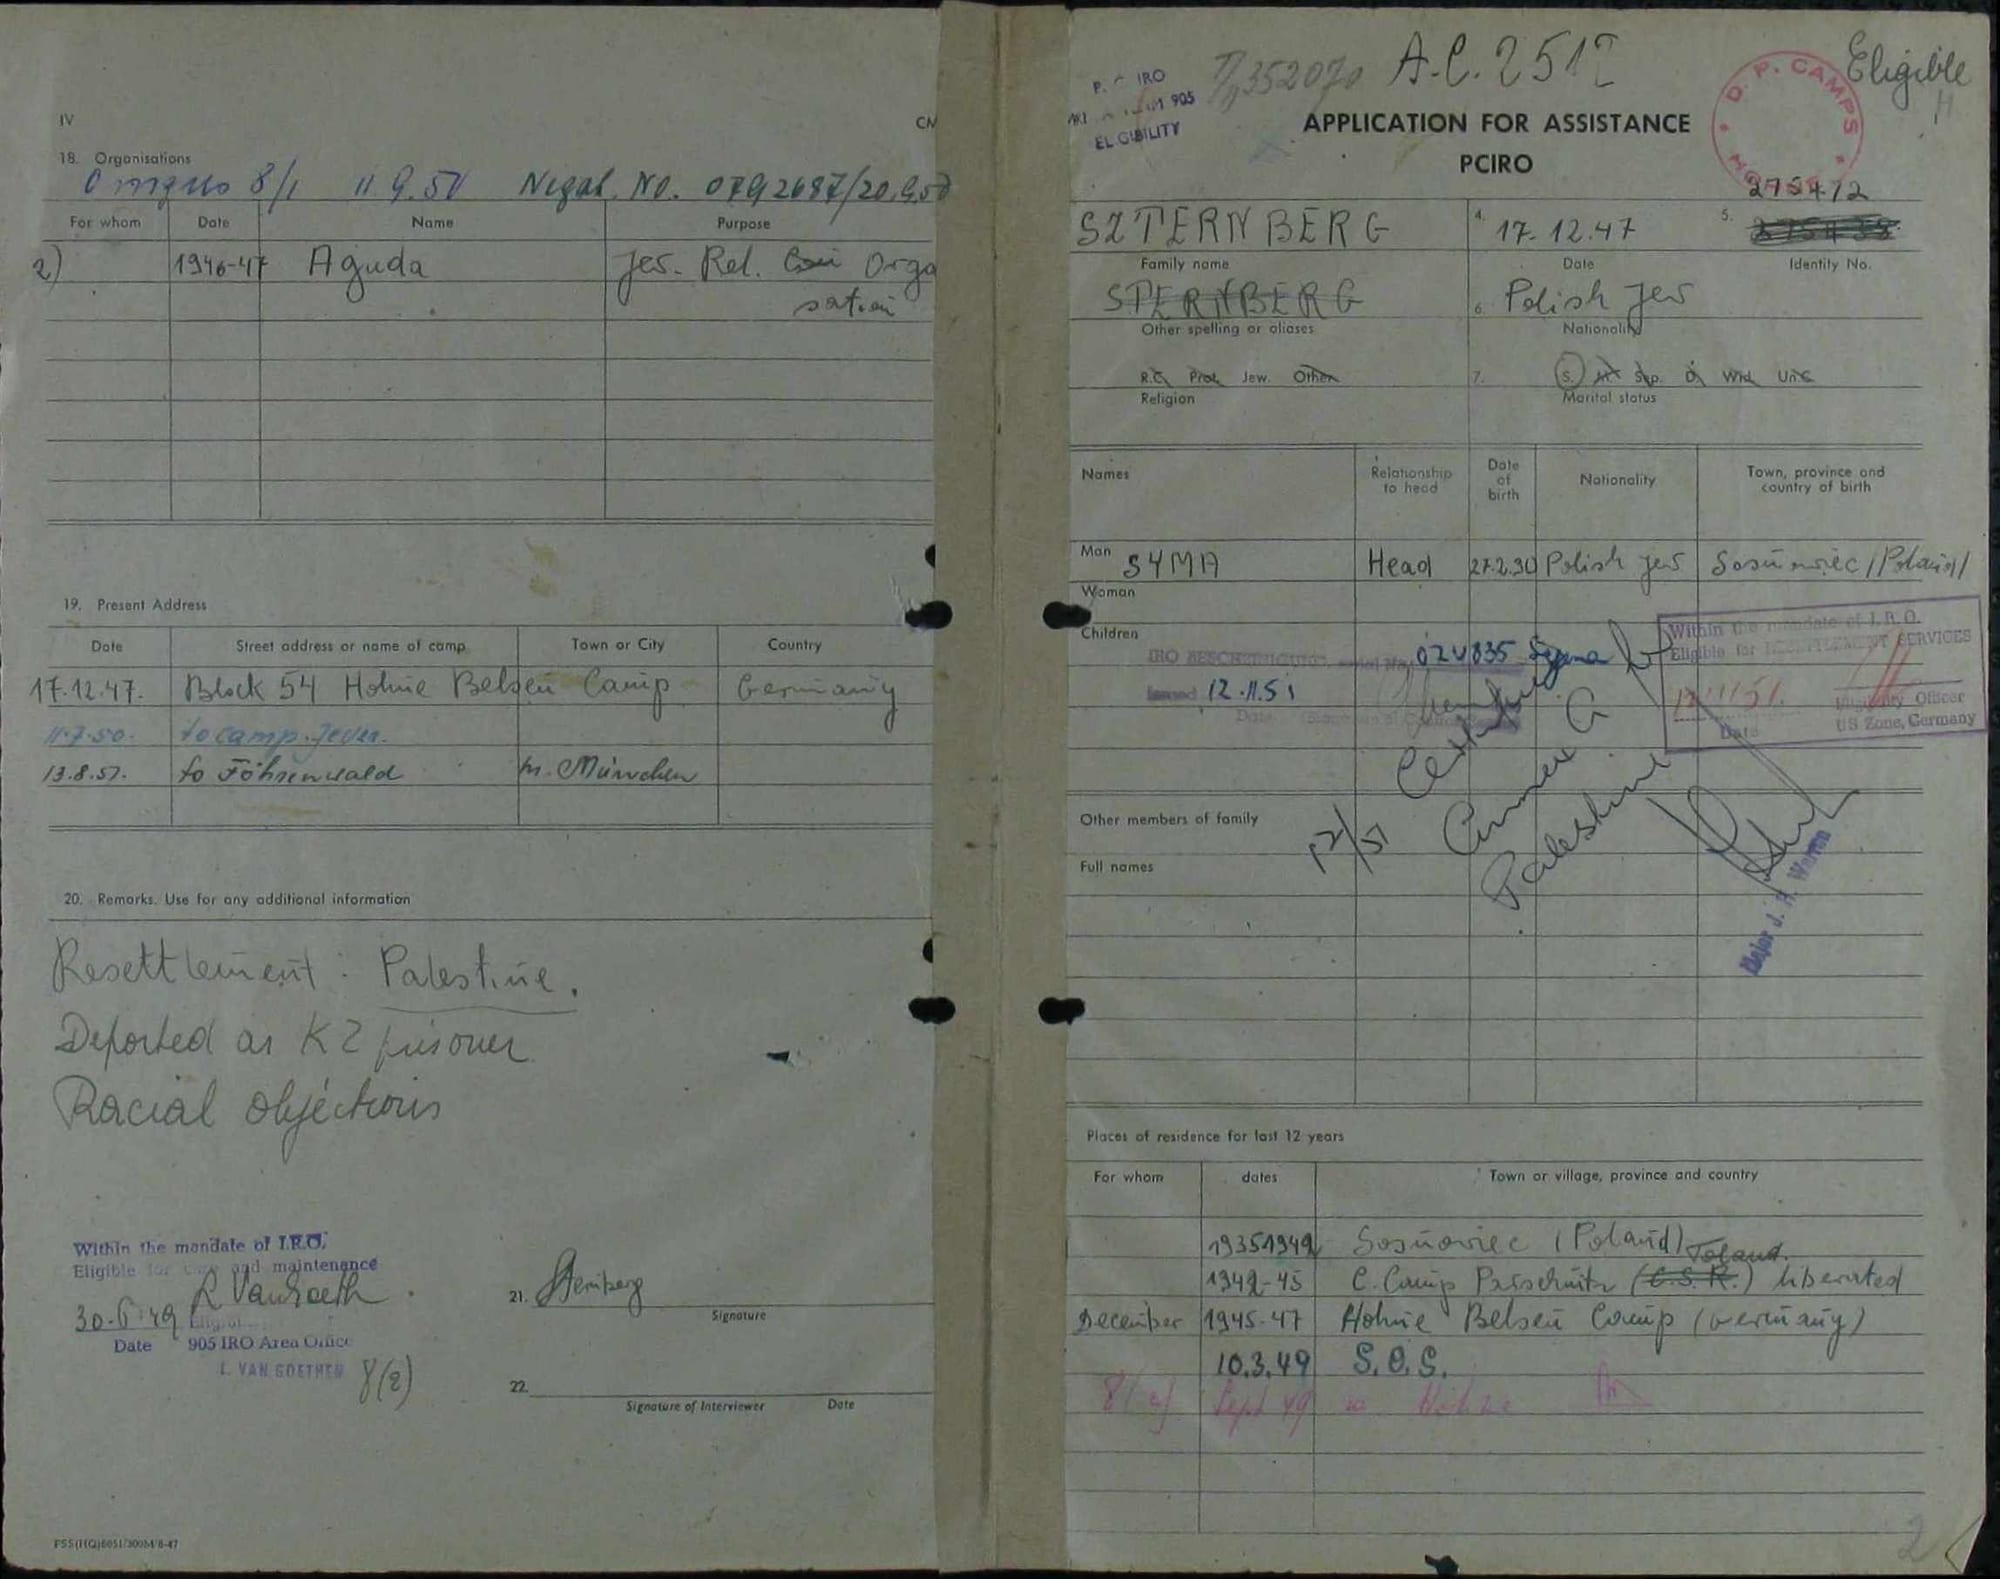 IV
18. Organisations
8/1 11.9.50 No. 0792687/20.9.50
For whom Date Name Purpose
2) 1946-47 Aguda Jew. Rel. Orga
sation
19. Present Address
Date Street address or name of camp Town or City Country
17.12.47. Block 54 Hohne Belsen Camp Germany
11.7.50. to camp. Jever.
13.8.51. to Föhrenwald b. München
20. Remarks. Use for any additional information
Resettlement: Palestine.
Deported as KZ prisoner
Racial objections
Within the mandate of I.R.O.
Eligible for care and maintenance
30.6.49
Date 905 IRO Area Office
L. VAN GOETHEN 8(2)
21. Sternberg
Signature
22.
Signature of Interviewer Date
PSS(HQ)6051/300M/8-47
IRO
905
ELIGIBILITY
352070 A.C. 251
Eligible
H
D. P. CAMPS
APPLICATION FOR ASSISTANCE
PCIRO
275472
SZTERNBERG 4. 17.12.47 5.
Family name Date Identity No.
STERNBERG 6. Polish Jew
Other spelling or aliases Nationality
R.C. Prot. Jew. Other 7. S. M. Sep. D. Wid. Unc
Religion Marital status
Names Relationship to head Date of birth Nationality Town, province and country of birth
Man SYMA Head 27.2.30 Polish Jew Sosnowiec /Poland/
Woman
Children
Within the mandate of I.R.O.
Eligible for RESETTLEMENT SERVICES
12/11/51.
Date Eligibility Officer
US Zone, Germany
IRO 020835 Syma
Issued 12.11.51
Date
Annex G
Palestine
Major J. H. Warren
Other members of family
Full names
Places of residence for last 12 years
For whom dates Town or village, province and country
1935-1942 Sosnowiec (Poland)
Poland.
1942-45 C. Camp Parschnitz (C.S.R.) liberated
December 1945-47 Hohne Belsen Camp (Germany)
10.3.49 S.O.S.
Sept 49
2